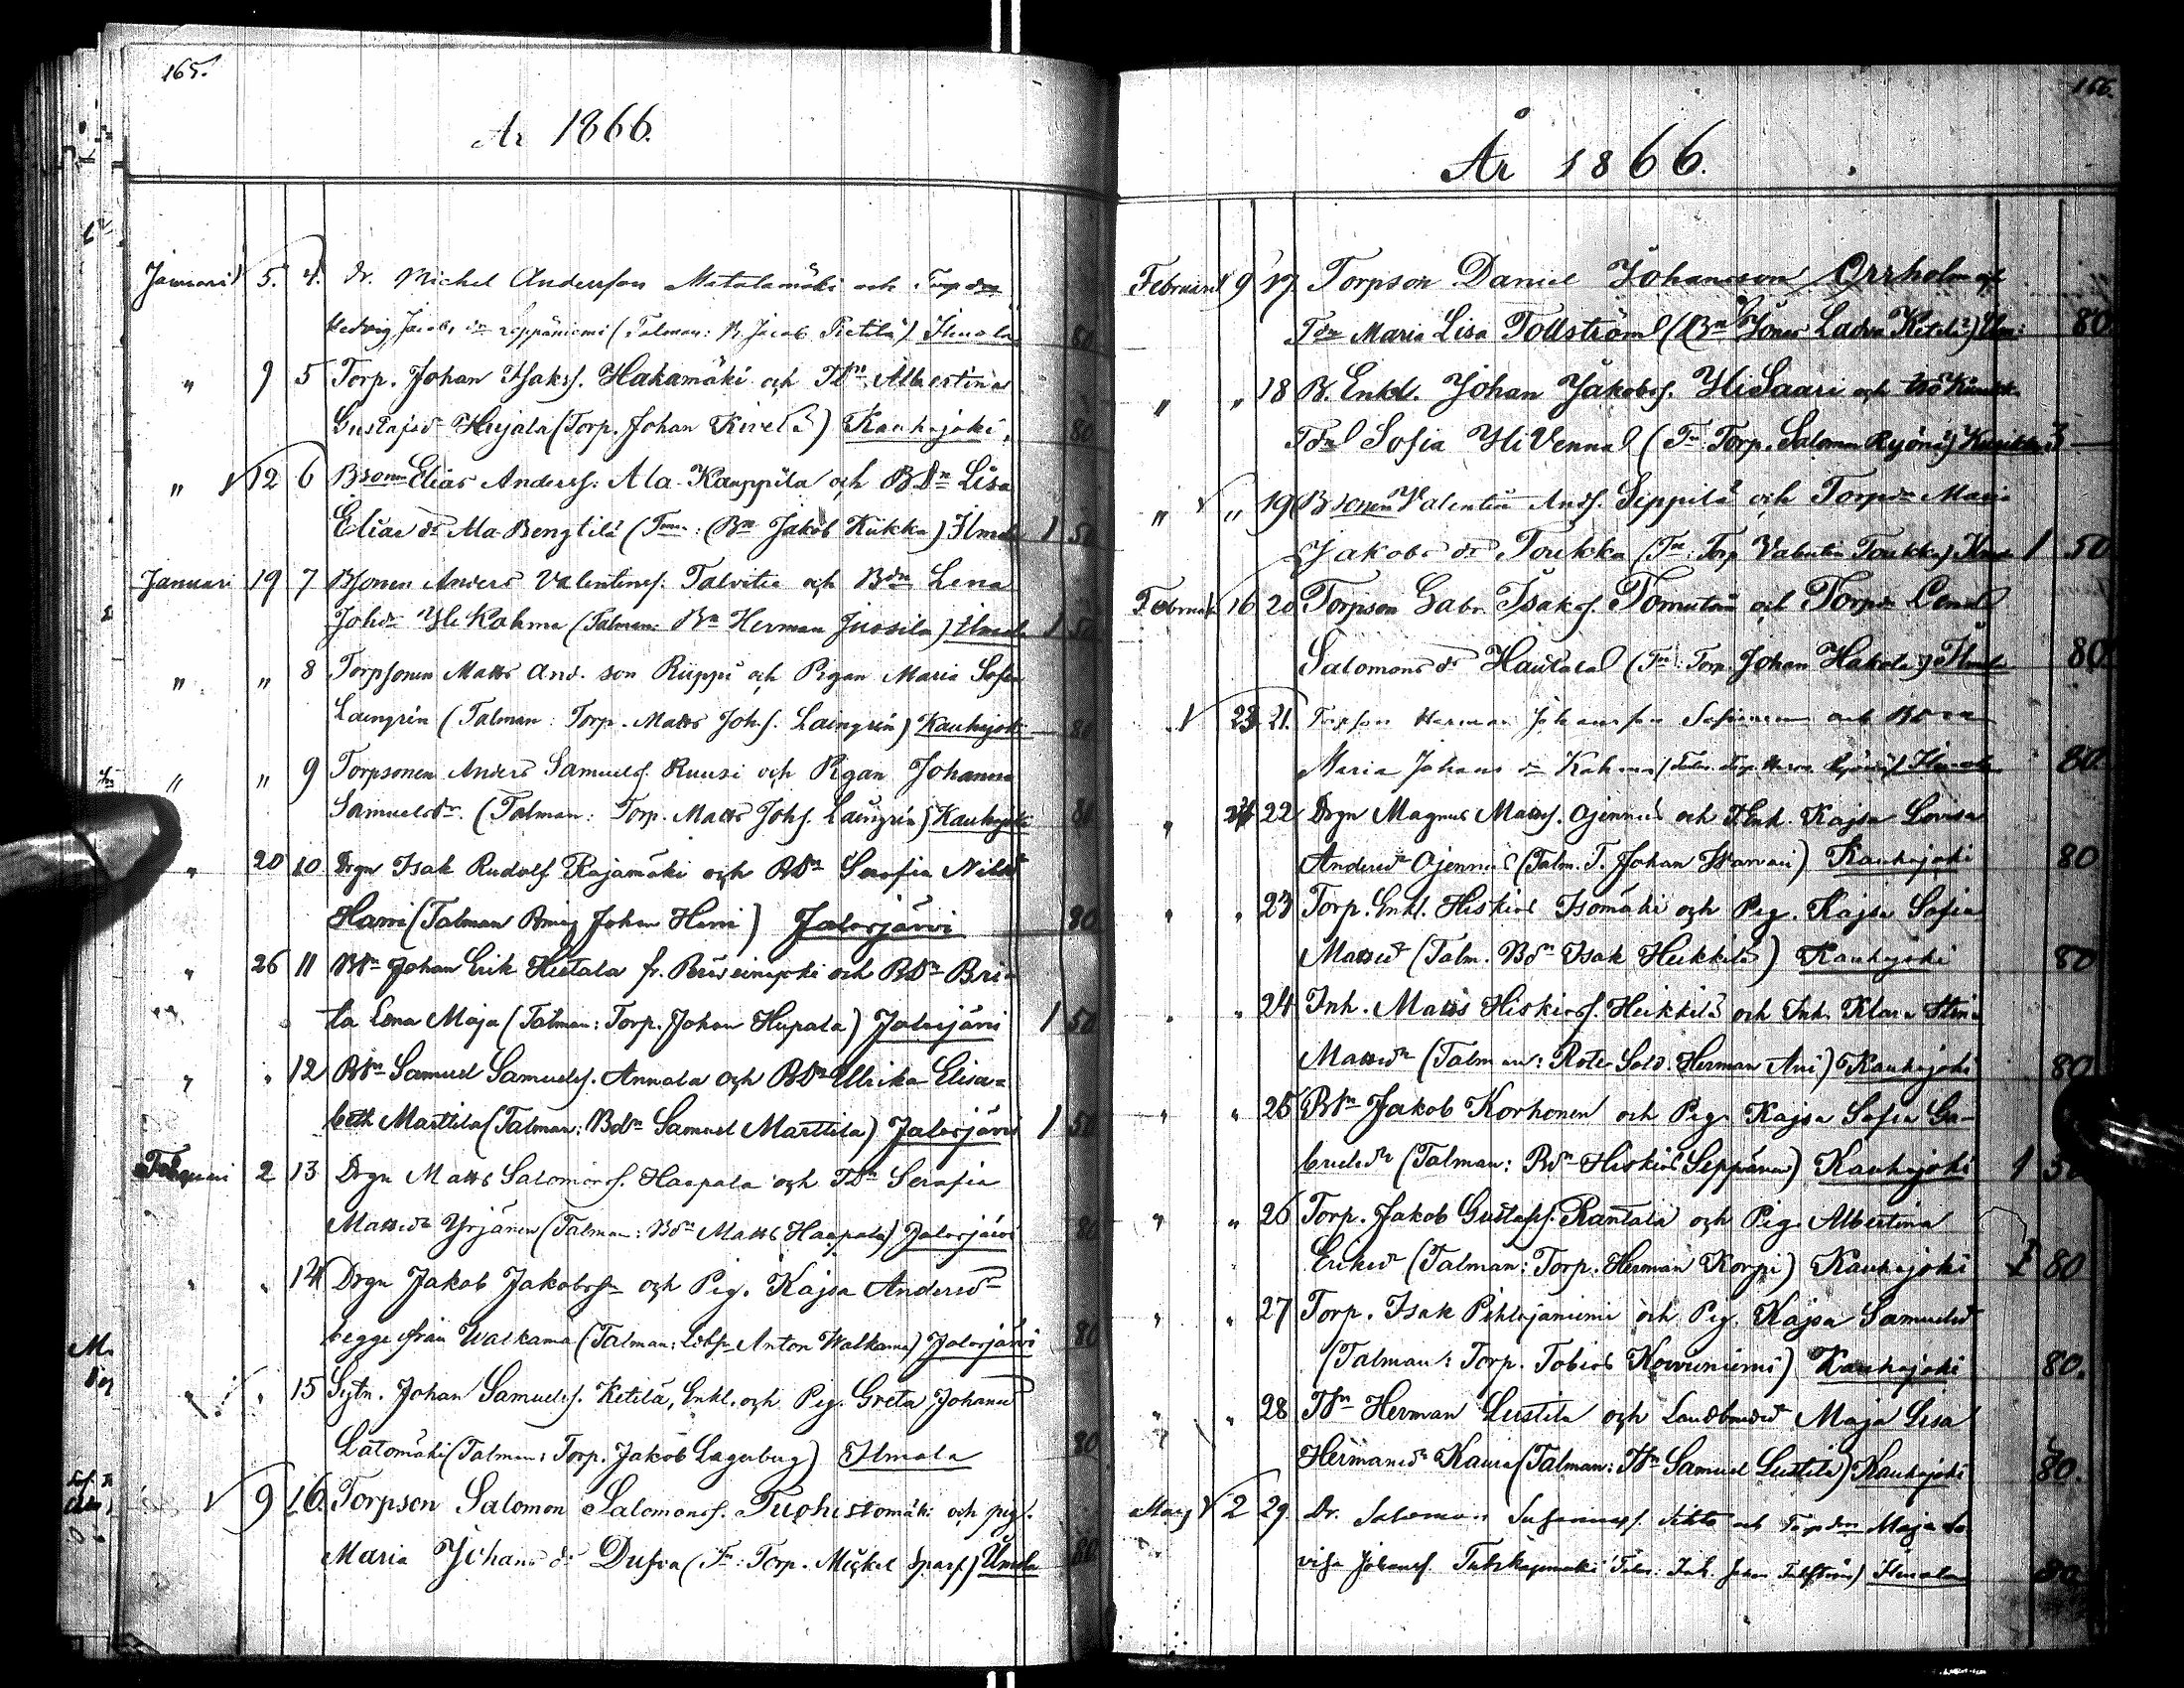 165.
År 1866.
Januari 5. 4. Dr. Michel Andersson Matalamäki och Torpdrn
Hedvig Jacobs dr Leppäniemi (Talman: B. Jacob Pietilä) Ilmola 80
" 9 5 Torp. Johan Isakss. Hakamäki och Tdn Albertina
Gustafsdr Hujala (Torp. Johan Kivelä) Kauhajoki, 80
" 12 6 Bsonen Elias Anderss. Ala-Kauppila och BDn Lisa
Elias dr Ala-Bengtilä (Tmn: (Bn Jakob Kukka) Ilmola 1 50
Januari 19 7 Bsonen Anders Valentinss. Talvitie och Bdn Lena
Johdr Yli Kahma (Talman: Bn Herman Jussila) Ilmola 1 50
" " 8 Torpsonen Matts And. son Riippi och Pigan Maria Sofia
Laingren (Talman: Torp. Matts Johs. Laingren) Kauhajoki 80
" " 9 Torpsonen Anders Samuelss. Ruusi och Pigan Johanna
Samuelsdr. (Talman: Torp. Matts Johs. Laingrén) Kauhajoki 80
" 20 10 Drgn Isak Rudolf Rajamäki och BDn Serafia Nilsd
Harri (Talman Johan Harri) Jalasjärvi 80
" 26 11 BSn Johan Erik Hietala fr. och BDn Bri-
ta Lena Maja (Talman: Torp. Johan Hupala) Jalasjärvi 1 50
" " 12 BSn Samuel Samuelss. Annala och BDn Ulrika Elisa-
beth Marttila (Talman: Bdn Samuel Marttila) Jalasjärvi 1 50
Februari 2 13 Drgn Matts Salomonss. Haapala och TDn Serafia
Mattsdr Yrjänen (Talman: Bdn Matts Haapala) Jalasjärvi 80
" " 14 Drgn Jakob Jakobssn och Pig. Kajsa Andersdr
begge från Walkama (Talman: Anton Walkama) Jalasjärvi 80
" " 15 Sytn. Johan Samuelss. Ketilä, Enkl. och Pig. Greta Johansd
Latomäki (Talman: Torp. Jakob Lagerberg) Ilmola 80
9 16. Torpson Salomon Salomonss. Tuohistomäki och pig.
Maria Johans dr Dufva (Tn: Torp. Mickel Sparf) Ilmola 80
166.
År 1866.
Februari 9 17. Torpson Daniel Johansson Orrholm och
Tdn Maria Lisa Tollström (Bn Jonas Ketilä) Ilm: 80
" " 18 B. Enkl. Johan Jakobss. YliSaari och
Tdn Sofia YliVenna (Tn: Torp. Salomon Ryöni) 3 —
" " 19 Bsonen Valentin Ands. Seppilä och Torpdn Maria
Jakobs dr Toukka (Tn: Torp Valentin Toukka) Ilmola 1 50
Februari 16 20 Torpson Gabr. Isakss. och Torpdn Lena
Salomons dr Hautala (Tn: Torp. Johan Hakola) Ilmola 80
23 21. Torpson Herman Johansson och Bdrn
Maria Johans dr Kahma Ilmola 80
" 24 22 Drgn Magnus Mattss. Ojennus och Enk. Kajsa Lovisa
Andersdr Ojennus (Talm. T. Johan Harvari) Kauhajoki 80
" " 23 Torp. Enkl. Hiskias Isomäki och Pig. Kajsa Sofia
Mattsdr (Talm. Bdn Isak Heikkilä) Kauhajoki 80
" " 24 Inh. Matts Hiskiass. Heikkilä och Inh. Klara Stina
Mattsdr (Talman: Rote Sold. Herman Ani) Kauhajoki 80
" " 25 BSn Jakob Korhonen och Pig. Kajsa Sofia Ga-
brielsdr (Talman: Bdn Hiskias Seppänen) Kauhajoki 1 50
" " 26 Torp. Jakob Gustafss. Rantala och Pig. Albertina
Eriksdr (Talman: Torp. Herman Korpi) Kauhajoki 80
" " 27 Torp. Isak Pihlajaniemi och Pig. Kajsa Samuelsd
(Talman: Torp. Tobias Kovuniemi) Kauhajoki 80.
" " 28 TSn Herman Lustila och Landbondsd. Maja Lisa
Hermansdr Kaura (Talman: TSn Samuel Lustila) Kauhajoki 80.
Mars 2 29. Dr. Salomon och Torpdrn Maja Lo
visa Johanss. Ilmola 80